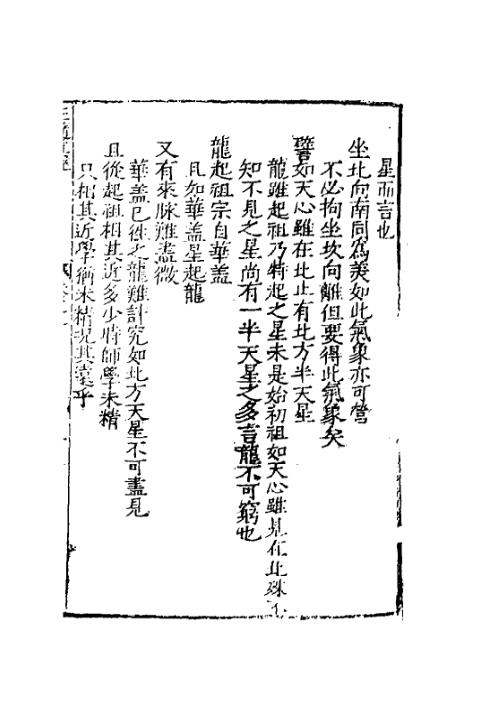 星而言也
坐北向南同為美如此氣象亦可營
不必拘坐坎向離但要得此氣象矣
譬如天心雖在北止有北方半天星
龍雖起祖乃特起之星未是始初祖如天心雖見在北殊不
知不見之星尚有一半天星之多言龍不可窮也
龍起祖宗自華盖
且如華盖星起龍
又有來脉難盡微
華盖已徃之龍難計究如北方天星不可盡見
且從起祖相其近多少時師學未精
只相其近學猶未精况其遠乎